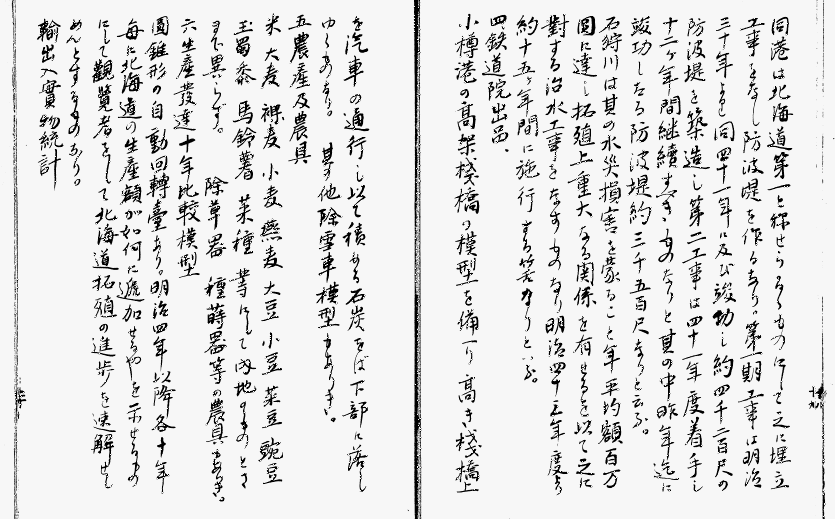 同港は北海道第一と称せらるるものにして之に埋立
工事をなし防波堤を作るあり。第一期工事は明治
三十年より同四十一年に及び竣功し約四千二百尺の
防波堤を築造し第二工事は四十一年度着手し
十二ヶ年間継続すべきものなりと其の中昨年迄に
竣功したる防波堤約三千五百尺なりと云ふ。
石狩川は其の水災損害を蒙ること年平均額百万
圓に達し拓殖上重大なる関係を有せるを以て之に
對する治水工事をなすものなり明治四十三年度より
約十五ヶ年間に施行する筈なりといふ。
四、鉄道院出品、
小樽港の高架棧橋の模型を備へり高き棧橋上
を汽車の通行し以て積める石炭をば下部に落し
ゆくあり。其の他除雪車模型もありき。
五農産及農具
米大麦裸麦小麦燕麦大豆小豆菜豆豌豆
玉蜀黍馬鈴薯菜種等にして内地のものとさ
まで異らず。除草器種蒔器等の農具もありき。
六生産發達十年比較模型
圓錐形の自動回轉臺あり。明治四年以降各十年
毎に北海道の生産額が如何に逓加せるやを示せるもの
にして觀覧者をして北海道拓殖の進歩を速解せし
めんとするものなり。
輸出入貨物統計